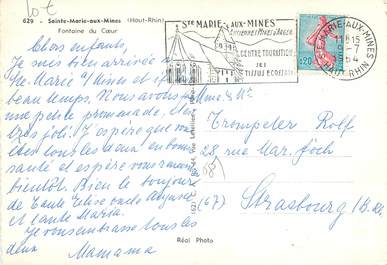 lot
629 - Sainte-Marie-aux-Mines (Haut-Rhin)
Fontaine du Cœur
Chers enfants,
Je suis bien arrivée à
Ste Marie s/ Mines et
beau temps. Nous avons fait
une petite promenade, c'est
très joli. J'espère que vous
êtes tous les deux en bonne
santé et espère vous revoir
bientôt. Bien le bonjour
de Tante Elise oncle Auguste
et tante Maria.
Je vous embrasse tous les
deux
Mamama
STE MARIE-AUX-MINES
ANCIENNES MINES D'ARGENT
CENTRE TOURISTIQUE
TISSUS ECOSSAIS
STE MARIE-AUX-MINES
11H15
9-7
1964
HAUT-RHIN
0,20
Mme & Mr.
Trompeter Rolf
28 rue Mar. Foch
(67) Strasbourg (B.
Réal Photo